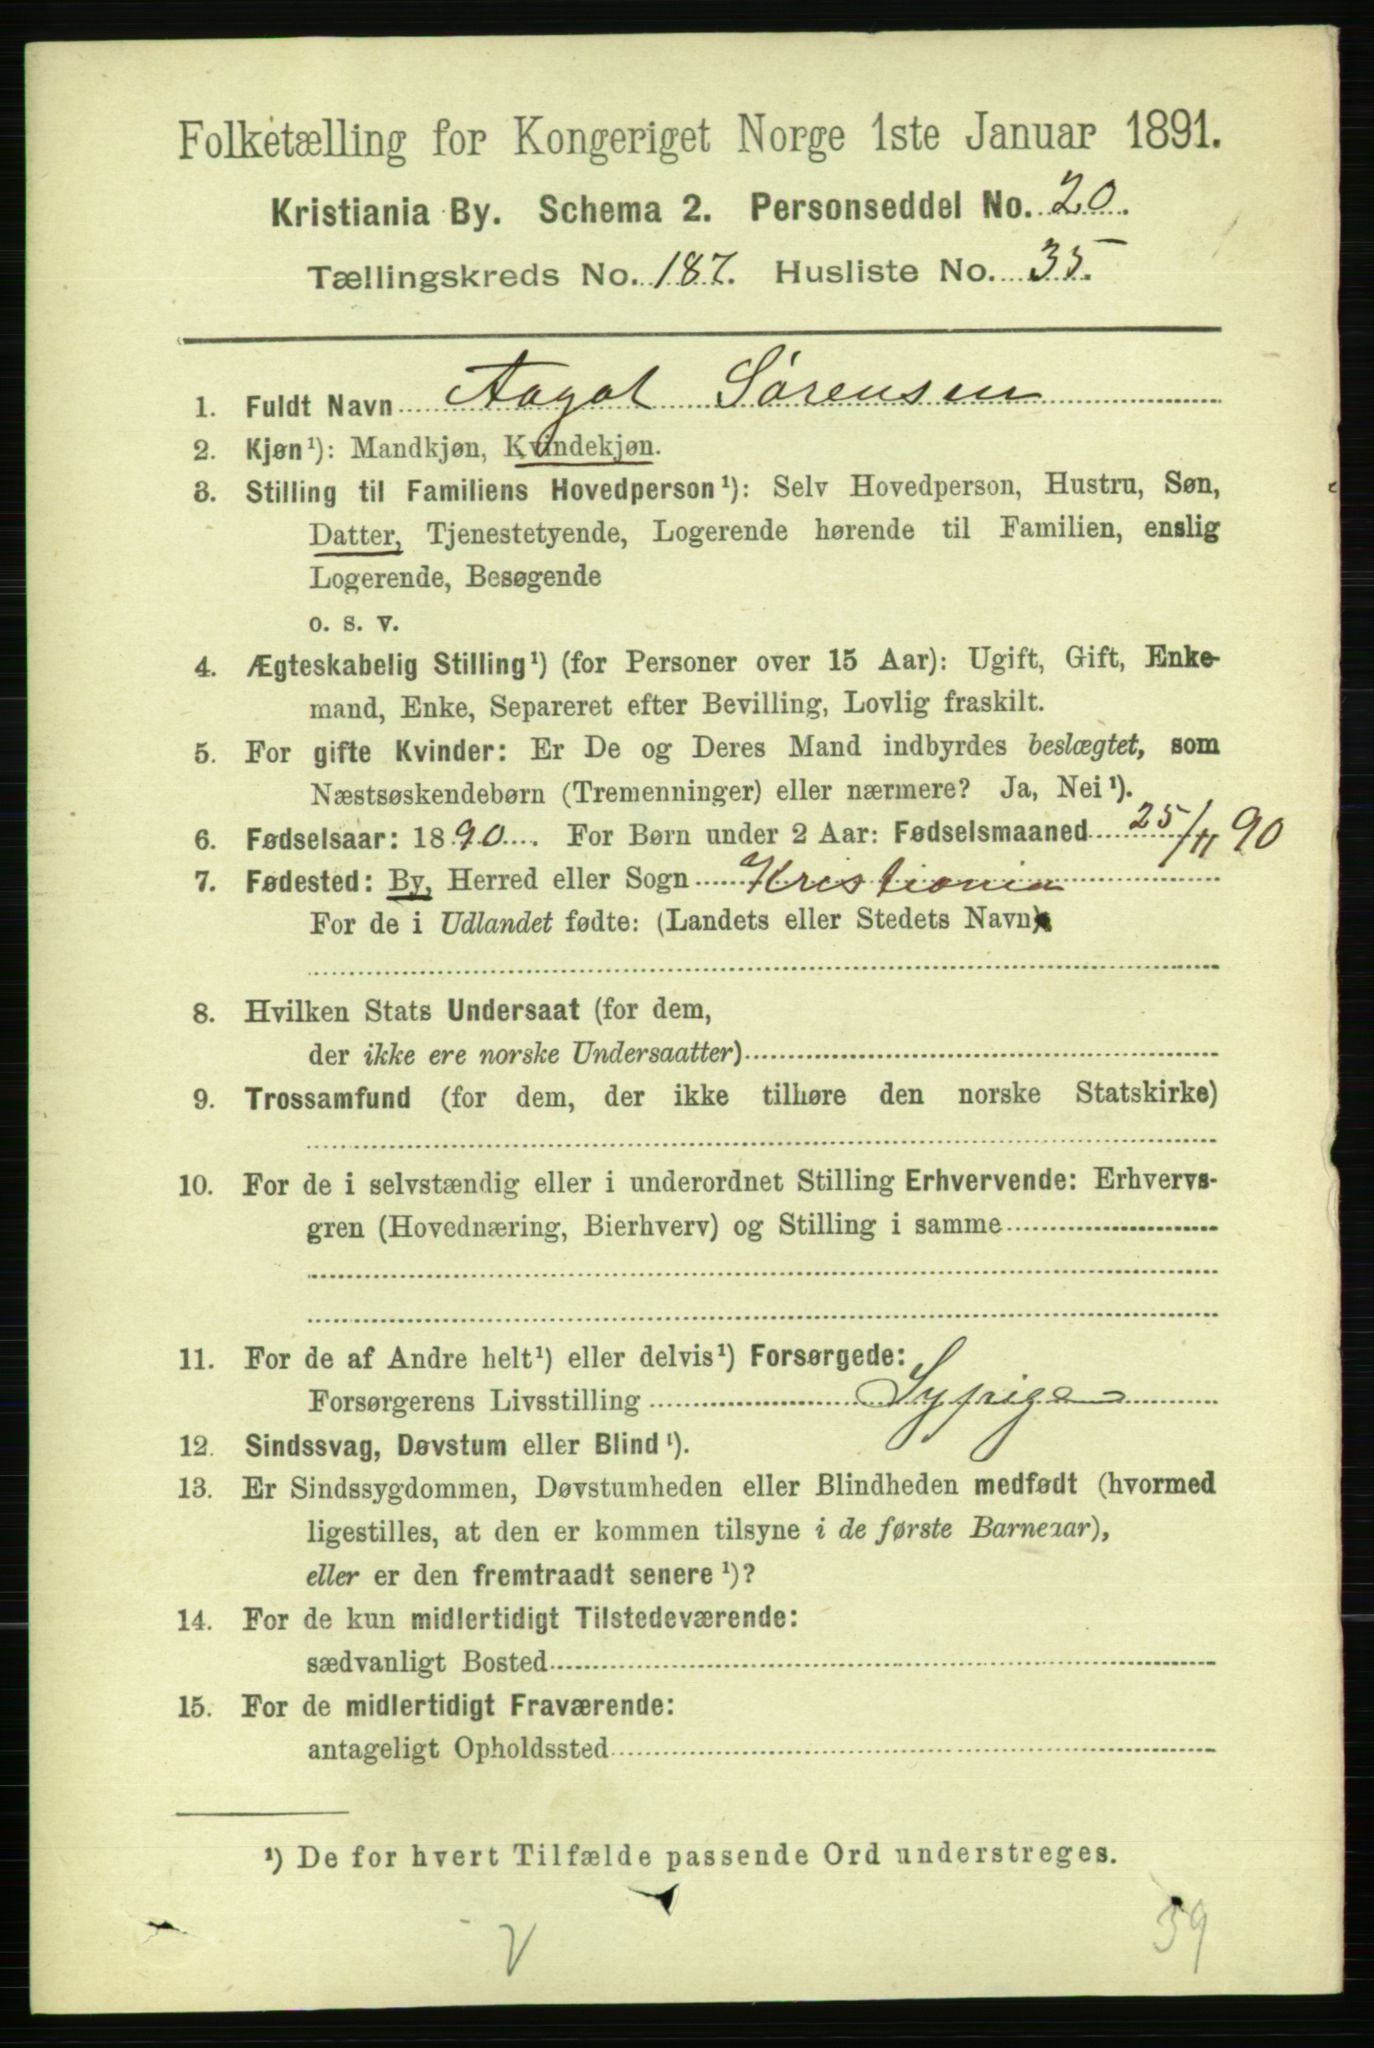 Folketælling for Kongeriget Norge 1ste Januar 1891.
Kristiania By. Schema 2. Personseddel No. 20.
Tællingskreds No. 187. Husliste No. 35.
1. Fuldt Navn Aagot Sørensen
2. Kjøn¹): Mandkjøn, Kvindekjøn.
3. Stilling til Familiens Hovedperson¹): Selv Hovedperson, Hustru, Søn,
Datter, Tjenestetyende, Logerende hørende til Familien, enslig
Logerende, Besøgende
o. s. v.
4. Ægteskabelig Stilling¹) (for Personer over 15 Aar): Ugift, Gift, Enke-
mand, Enke, Separeret efter Bevilling, Lovlig fraskilt.
5. For gifte Kvinder: Er De og Deres Mand indbyrdes beslægtet, som
Næstsøskendebørn (Tremenninger) eller nærmere? Ja, Nei¹).
6. Fødselsaar: 1890. For Børn under 2 Aar: Fødselsmaaned 25/11 90
7. Fødested: By, Herred eller Sogn Kristiania
For de i Udlandet fødte: (Landets eller Stedets Navn)
8. Hvilken Stats Undersaat (for dem,
der ikke ere norske Undersaatter)
9. Trossamfund (for dem, der ikke tilhøre den norske Statskirke)
10. For de i selvstændig eller i underordnet Stilling Erhvervende: Erhvervs-
gren (Hovednæring, Bierhverv) og Stilling i samme
11. For de af Andre helt¹) eller delvis¹) Forsørgede:
Forsørgerens Livsstilling Sypige
12. Sindssvag, Døvstum eller Blind¹).
13. Er Sindssygdommen, Døvstumheden eller Blindheden medfødt (hvormed
ligestilles, at den er kommen tilsyne i de første Barneaar),
eller er den fremtraadt senere¹)?
14. For de kun midlertidigt Tilstedeværende:
sædvanligt Bosted
15. For de midlertidigt Fraværende:
antageligt Opholdssted
¹) De for hvert Tilfælde passende Ord understreges.
59